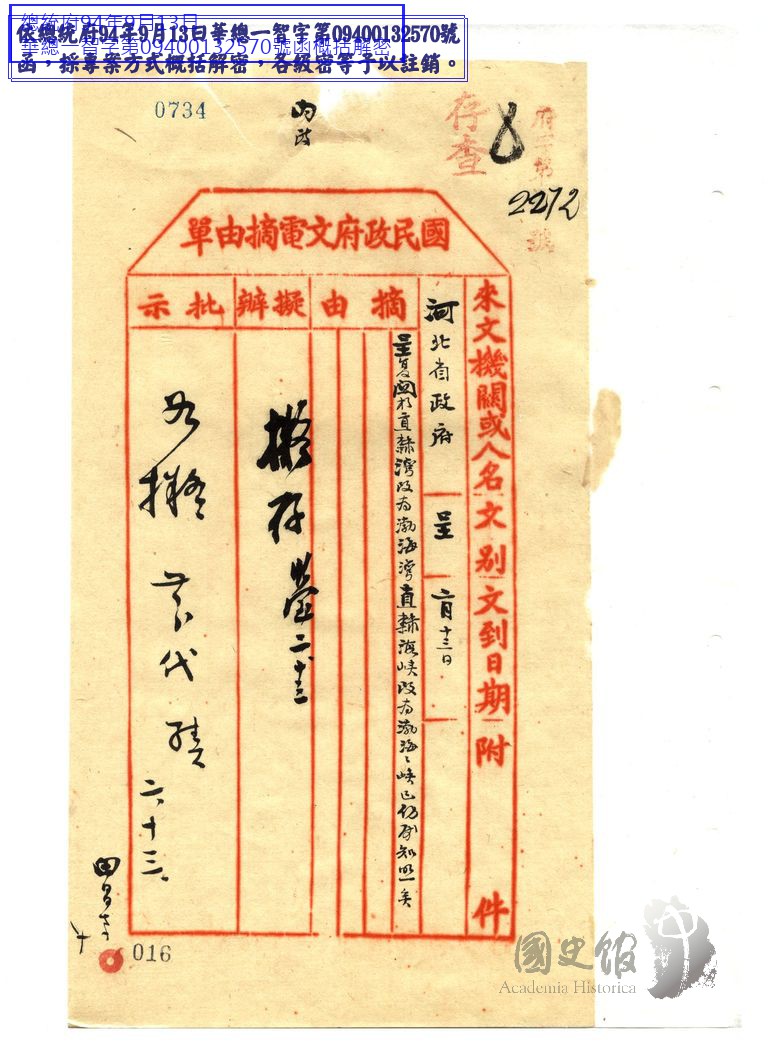 總統府94年9月13日
華總一智字第09400132570號函概括解密
依總統府94年9月13日華總一智字第09400132570號
函，採專案方式概括解密，各級密等予以註銷。
0734
存查
府字第
號
2272
國民政府文電摘由單
來文機關或人名
文別
文到日期
附件
河北省政府
呈
二月十三日
摘由
呈复関於直隸灣改為渤海灣直隸海峽改為渤海々峽已飭屬知照矣
擬辦
擬存
二、十三
批示
如擬
代
二、十三、
016
國史館
Academia Historica